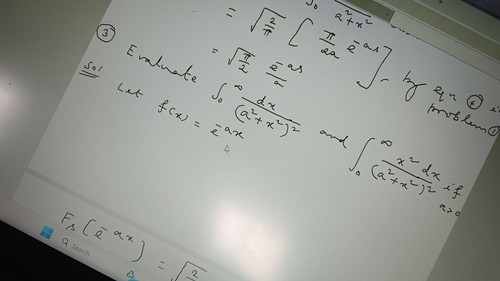 ∫₀ a²+x²
= √(2/π) [ π/2a e^-as ], by eqn ② in problem ①
= √(π/2) e^-as/a
③ Evaluate ∫₀^∞ dx/(a²+x²)² and ∫₀^∞ x² dx/(a²+x²)² if a>0
Sol Let f(x) = e^-ax
Fs [e^-ax] = √2
Search